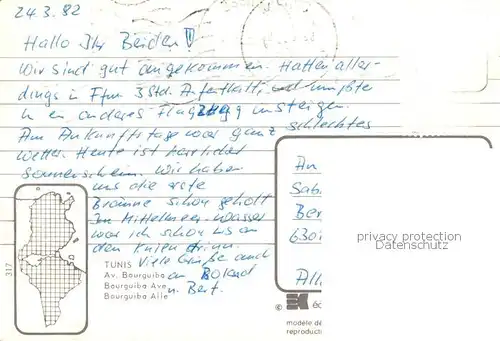 24.3.82
Hallo Ihr Beiden!!
Wir sind gut angekommen. Hatten aller-
dings in Ffm 3 Std. Aufenthalt, und mußten
in en anderes Flugzeug umsteigen.
Am Ankunftstage war ganz schlechtes
Wetter. Heute ist herrlicher
Sonnenschein. Wir haben
uns die erste
Bräune schon geholt
Im Mittelmeer-Wasser
war ich schon bis an
den Knien drinn.
Viele Grüße auch
an Roland
u. Bert.
317
TUNIS
Av. Bourguiba
Bourguiba Ave
Bourguiba Alle
An
Sab
Ber
630
All
privacy protection
Datenschutz
©
modèle dé
reproducti